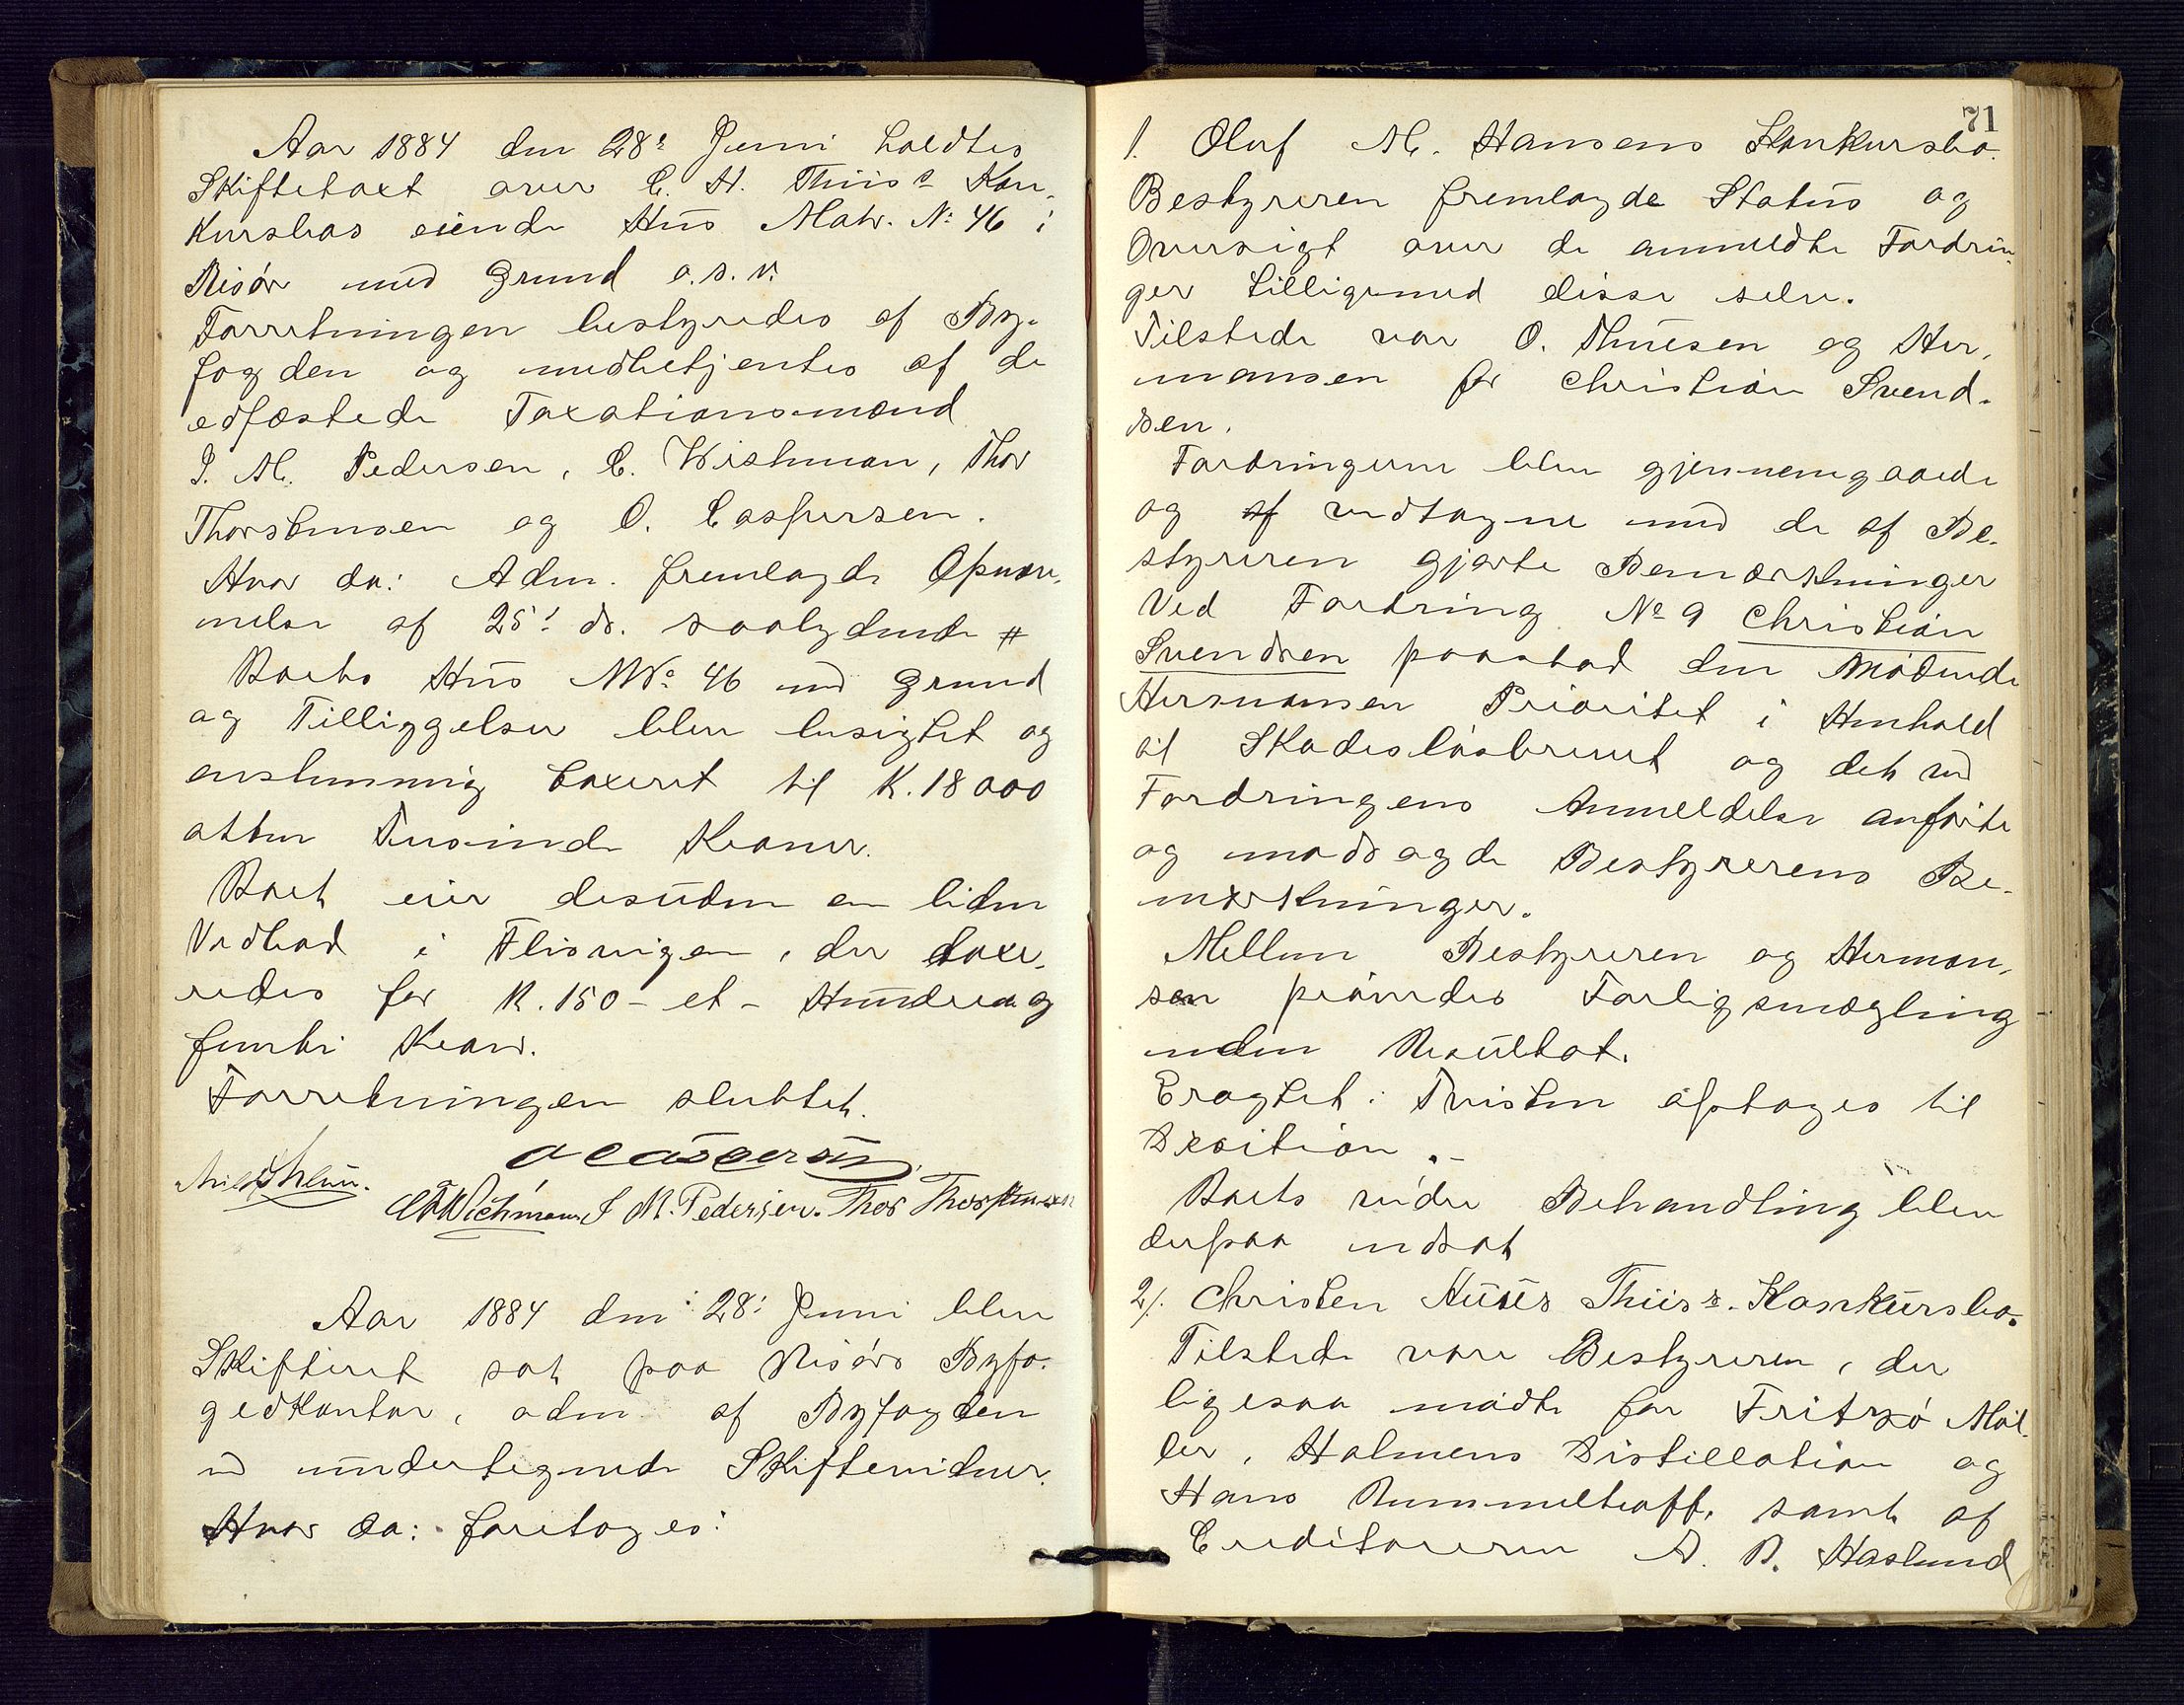 Aar 1884 den 28: Juni holdtes
Skiftetaxt over C. H. Thiis's Kon-
kursbos eiende Hus Matr. No: 46 i
Risør med Grund o.s.v.
Forretningen bestyredes af By-
fogden og medbetjentes af de
edfæstede Taxationsmænd
J. M. Pedersen, C. Wichman, Thor
Thorstensen og O. Caspersen.
Hvor da: Adm. fremlagde Opnæv-
nelse af 25! ds. saalydende #
Boets Hus MNo: 46 med Grund
og Tilliggelser blev besigtet og
enstemmig taxeret til K. 18000
atten Tusinde Kroner.
Boet eier desuden en liden
Vedbod i Flisvigen, der taxe-
redes for K. 150 - et - Hundre og
femti Kron.
Forretningen sluttet.
O Caspersen
C F Wichmann J M. Pedersen. Thor Thorstensen
Aar 1884 den 28: Juni blev
Skifteret sat paa Risørs Byfo-
gedkontor, adm. af Byfogden
m undertegnede Skiftevidner.
Hvor da: foretoges:
71
1. Oluf M. Hansens Konkursbo.
Bestyreren fremlagde Status og
Oversigt over de anmeldte Fordrin-
ger tilligemed disse selv.
Tilstede var O. Thuesen og Her-
mansen for Christian Svend-
sen.
Fordringerne blev gjennemgaaede
og af vedtagne med de af Be-
styreren gjorte Bemærkninger
Ved Fordring No 9 Christian
Svendsen paastod den mødende
Hermansen Prioritet i Henhold
til Skadesløsbrevet og det ved
Fordringens Anmeldelse anførte
og modsagde Bestyrerens Be-
mærkninger.
Mellem Bestyreren og Herman-
sen prøvedes Forligsmægling
uden Resultat.
Eragtet: Tvisten optages til
Decition.-
Boets videre Behandling blev
derpaa udsat
2/. Christen Huus Thiis's Konkursbo.
Tilstede vare Bestyreren, der
ligesaa mødte for Fritzø Møl-
ler, Holmens Distillation og
Hans Rummelhoff, samt af
Creditorerne A. B. Haslund